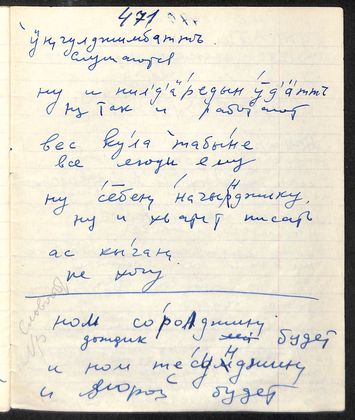 471
ӱңгулджимбаттъ
слушаются
ну и нилд'а̄редын ӱд'ӓттъ
ну так и работают
вес кула табыне
все люди ему
ну сёбең начьырджику,
ну и хватит писать
ас кыгаң
не хочу
ном соролджину
дождик будет
и ном тесыңджину
и мороз будет